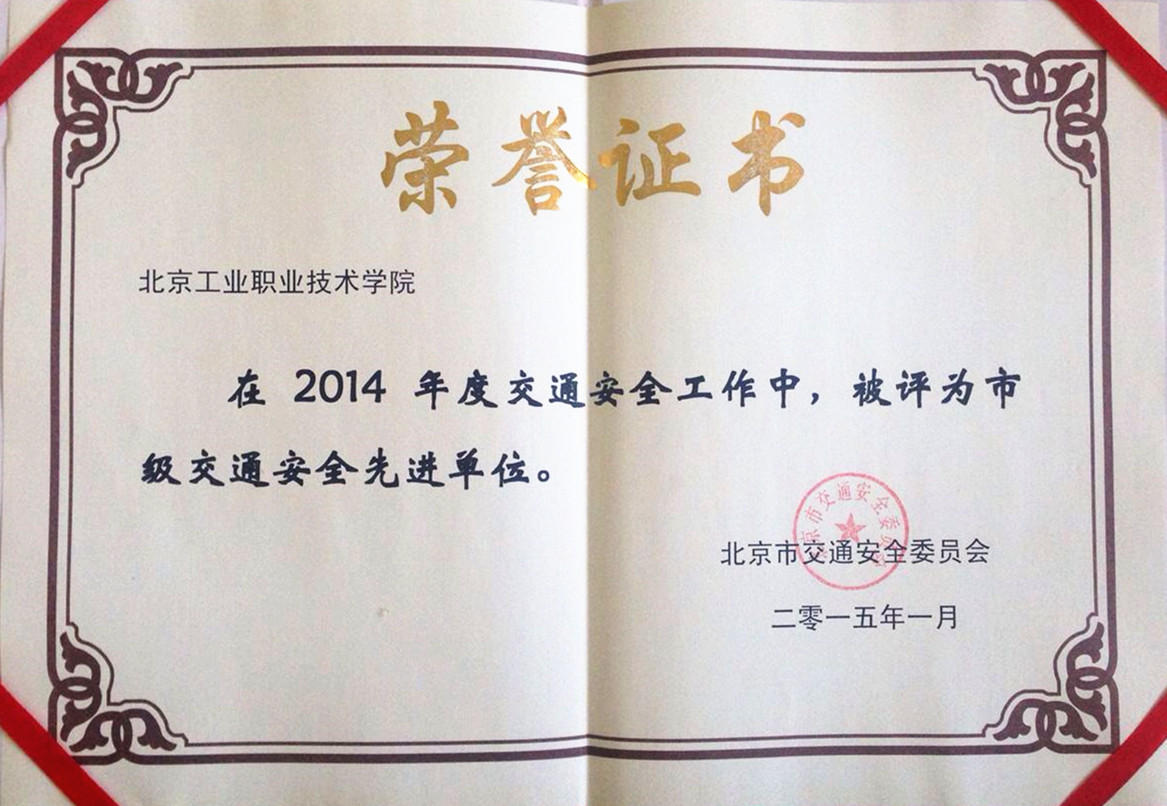 荣誉证书
北京工业职业技术学院
在 2014 年度交通安全工作中，被评为市
级交通安全先进单位。
北京市交通安全委员会
北京市交通安全委员会
二零一五年一月